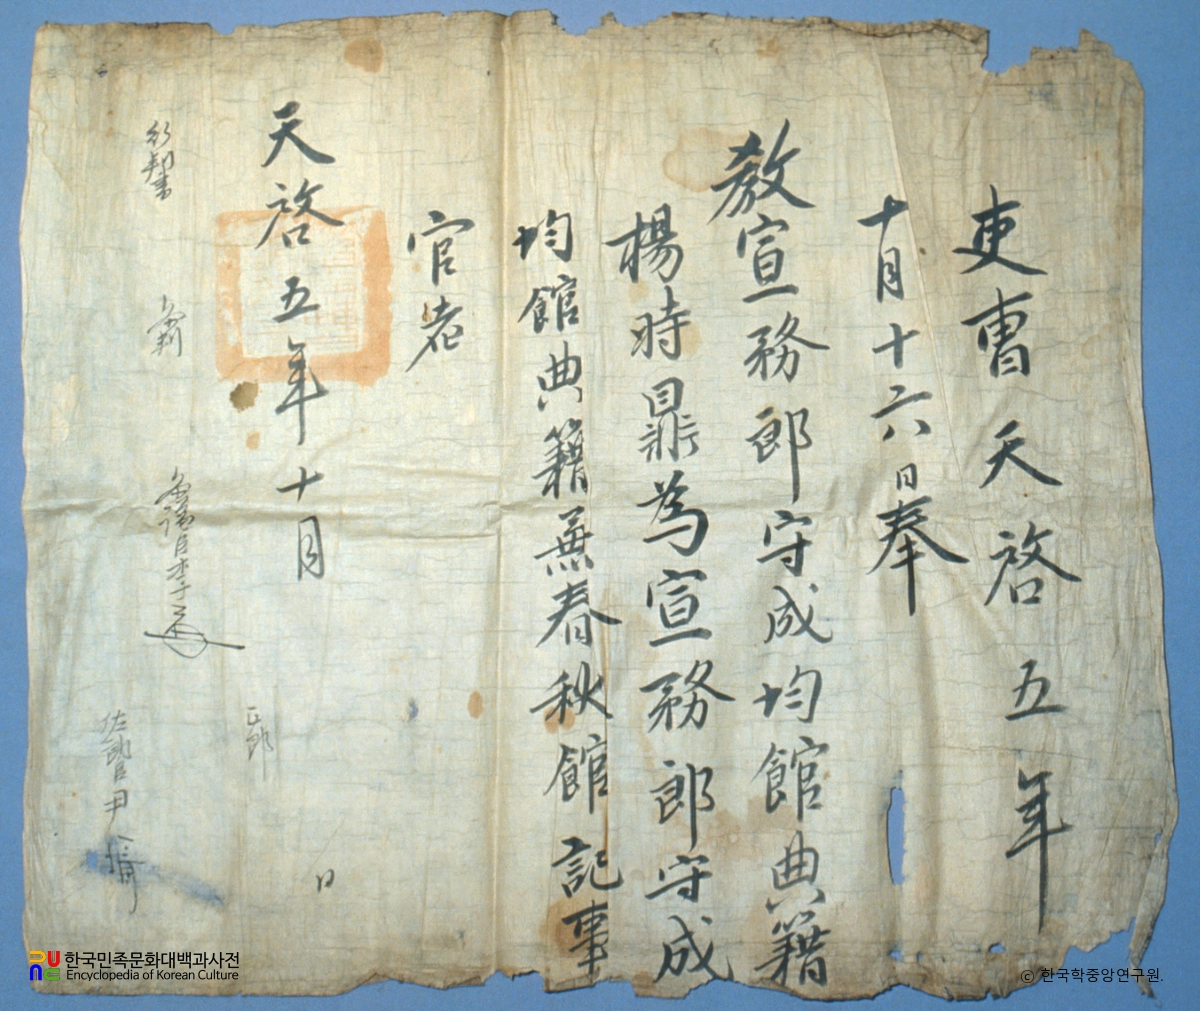 吏曹天啓五年
十月十六日奉
教宣務郎守成均館典籍
楊時鼎爲宣務郎守成
均館典籍兼春秋館記事
官者
天啓五年十月
日
行判書
參判
參議臣李
正郎
佐郎臣尹
한국민족문화대백과사전
Encyclopedia of Korean Culture
ⓒ 한국학중앙연구원.